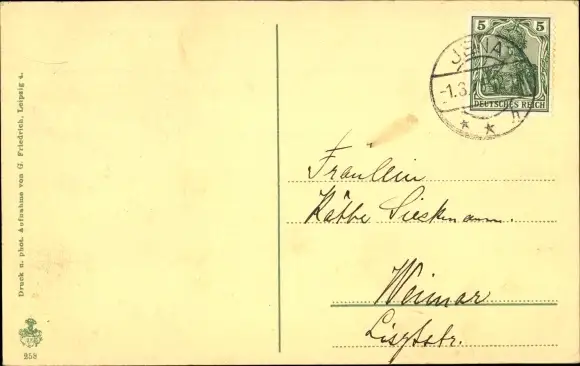 Druck u. phot. Aufnahme von G. Friedrich, Leipzig 4.
258
5 5
DEUTSCHES REICH
JENA
-1.6.
Fräulein
Käthe Sieskmann.
Weimar
Lisztstr.